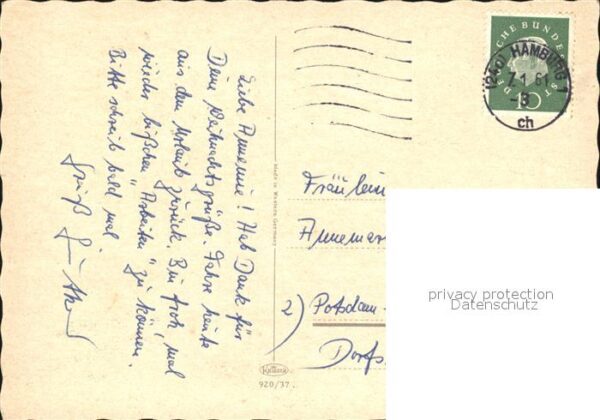 Liebe Annemie! Hab Dank für
Deine Weihnachtsgrüße. Fahre heute
aus dem Urlaub zurück. Bin froh, mal
wieder bißchen "Arbeiten" zu können.
Bitte schreib bald mal.
Gruß Günther
Made in Western Germany
Krüger
920/37.
DEUTSCHE BUNDESPOST
10
(24a) HAMBURG 1
7.1.61
-8
ch
Fräulein
Annemar
2) Potsdam-
Dorfs
privacy protection
Datenschutz